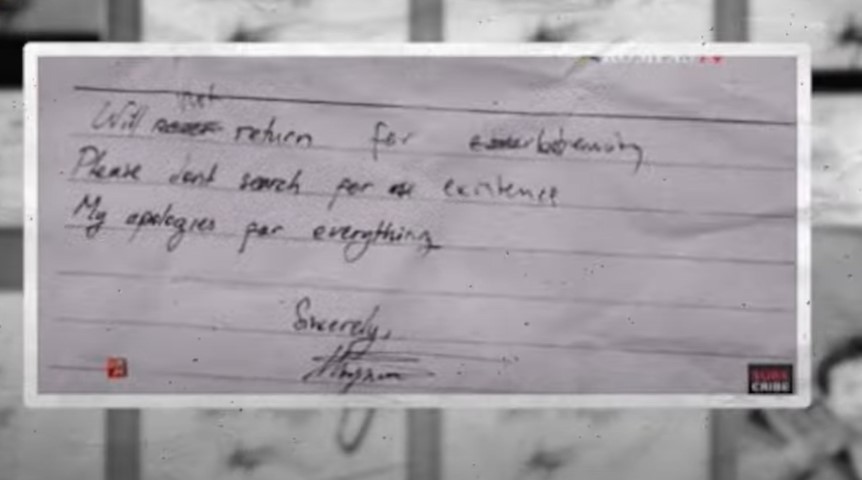 not
Will return for
Please dont search for existence
My apologies for everything
Sincerely,
SUBS
CRIBE